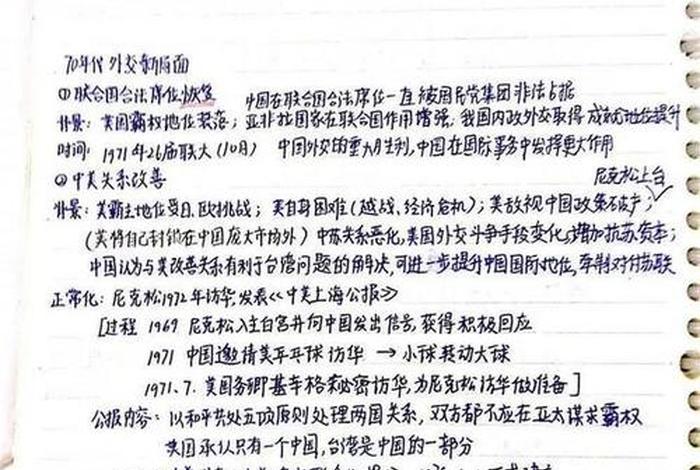 70年代外交新局面
①联合国合法席位恢复 中国在联合国合法席位一直被国民党集团非法占据
背景：美国霸权地位衰落；亚非拉国家在联合国作用增强，我国内政外交取得成就地位提升
时间：1971年26届联大(10月) 中国外交的重大胜利，中国在国际事务中发挥更大作用
②中美关系改善 尼克松上台
背景：美霸主地位受日、欧挑战；美自身困难(越战、经济危机)；美敌视中国政策破产；
(美将自己封锁在中国庞大市场外) 中苏关系恶化，美国外交斗争手段变化，增加抗苏资本；
中国认为与美改善关系有利于台湾问题的解决，可进一步提升中国国际地位，牵制对付苏联
正常化：尼克松1972年访华，发表《中美上海公报》
[过程 1969 尼克松入主白宫并向中国发出信号，获得积极回应
1971 中国邀请美乒乓球访华 → 小球转动大球
1971.7. 美国务卿基辛格秘密访华，为尼克松访华做准备]
公报内容：以和平共处五项原则处理两国关系，双方都不应在亚太谋求霸权
美国承认只有一个中国，台湾是中国的一部分